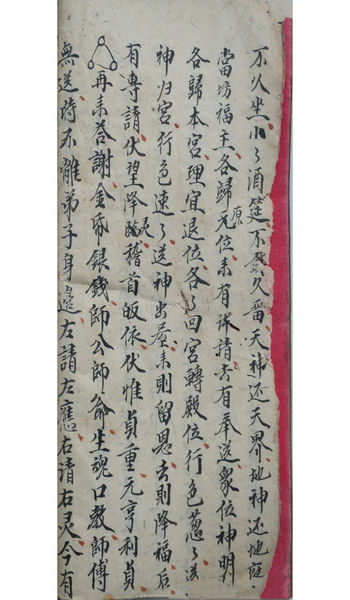 不久坐小々酒筵不敢久畨天神还天界地神还地府
當坊福王各歸元位来有許請去有奉送衆位神明
原
各歸本宮理宜退位各々回宮轉殿位行色葱々送
神归宮行色速々送神出崖来則留恩去則降福后
有專請伏望降臨稽首皈依伏惟貞重元亨利貞
灵
再来荅謝金帋銀錢師公師翁生魂口教師傅
無送時不離弟子身邊左請左應右請右灵今有